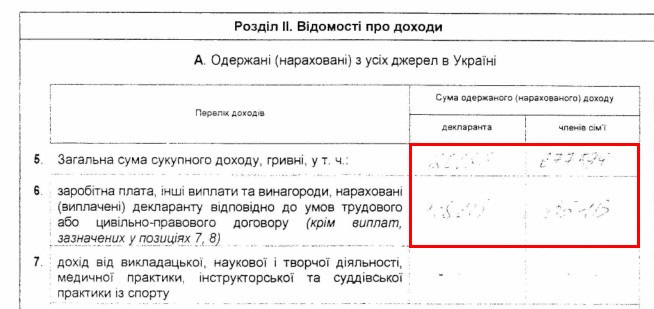 Розділ II. Відомості про доходи
А. Одержані (нараховані) з усіх джерел в Україні
Перелік доходів
Сума одержаного (нарахованого) доходу
декларанта
членів сім'ї
5. Загальна сума сукупного доходу, гривні, у т. ч.:
6. заробітна плата, інші виплати та винагороди, нараховані
(виплачені) декларанту відповідно до умов трудового
або цивільно-правового договору (крім виплат,
зазначених у позиціях 7, 8)
7. дохід від викладацької, наукової і творчої діяльності,
медичної практики, інструкторської та суддівської
практики із спорту
- -